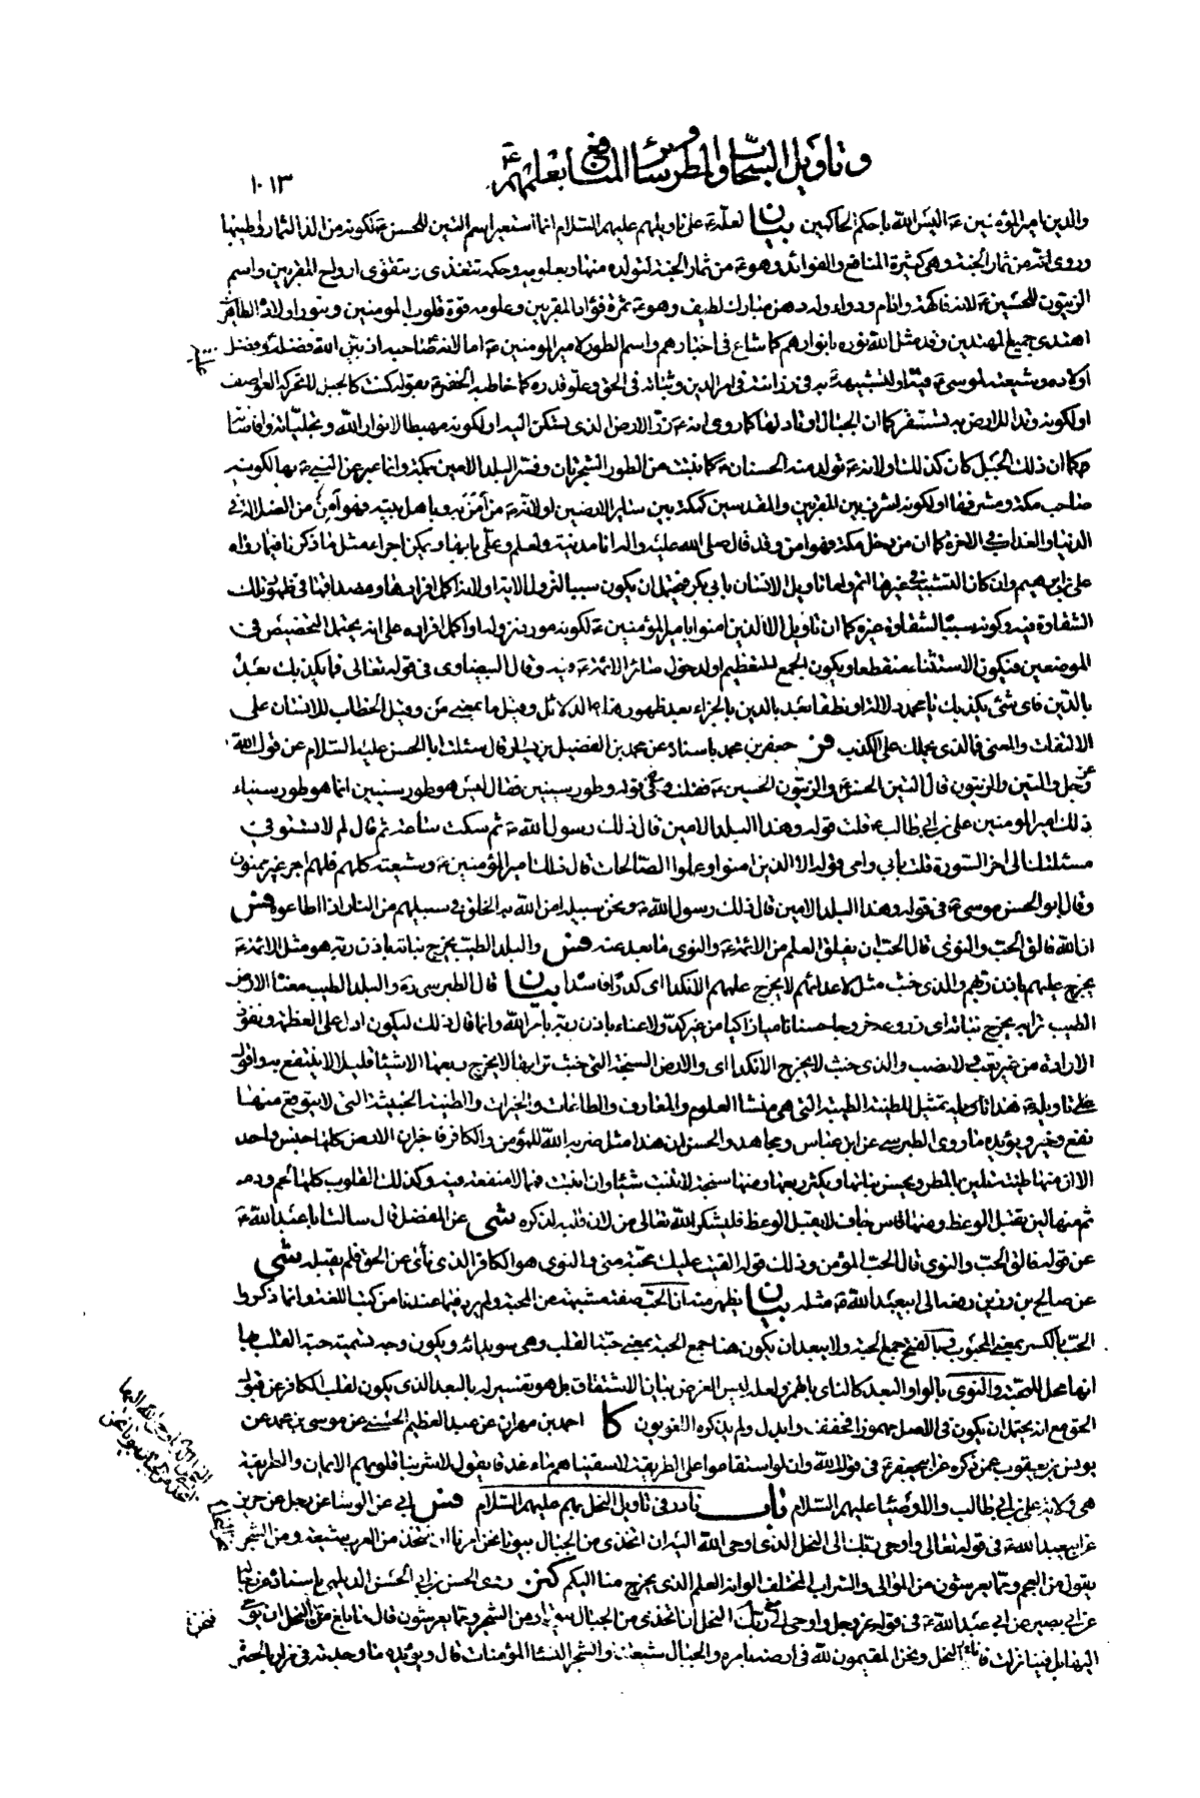 وتاويل السحاب والمطر وسائر المنافع بعلمهم ع
١٠١٣
والدين امير المؤمنين ع اليس الله باحكم الحاكمين بيان لعله ع على تاويلهم عليهم السلام انما استعير اسم التين للحسن ع لكونه من الذ الثمار واطيبها
وروى انه من ثمار الجنة وهي كثيرة المنافع والفوائد وهو ع من ثمار الجنة لتولده منها وبعلومه وحكمه تتغذى وتتقوى ارواح المقربين واسم
الزيتون للحسين ع لانه فاكهة وادام ودواء وله دهن مبارك لطيف وهو ع ثمرة فؤاد المقربين وعلومه قوة قلوب المومنين وبنور اولاده الطاهرين
اهتدى جميع المهتدين وقد مثل الله نوره بانوارهم كما شاع في اخبارهم واسم الطور لامير المومنين ع اما لانه صاحبه اذ بين الله فضله وفضل
اولاده وشيعته لموسى ع فيه او لتشبيهه به في رزانته في امر الدين وثباته في الحق وعلو قدره كما خاطبه الخضر ع بقوله كنت كالجبل لا تحركه العواصف
او لكونه وتدا للارض به تستقر كما ان الجبال اوتاد لها كما روى انه ع زر الارض الذي تسكن اليه او لكونه مهبطا لانوار الله وتجلياته وافاضاته
كما ان ذلك الجبل كان كذلك او لانه ع تولد منه الحسنان ع كما نبتت من الطور الشجرتان وفسر البلد الامين بمكة وانما عبر عن النبي ص بها لكونه
صاحب مكة ومشرفها او لكونه اشرف بين المقربين والمقدسين كمكة بين سائر الارضين او لانه ص من آمن به وباهل بيته فهو آمن من الضلالة في
الدنيا والعذاب في الاخرة كما ان من دخل مكة فهو امن وقد قال صلى الله عليه واله انا مدينة العلم وعلي بابها ويمكن اجراء مثل ما ذكرنا فيما رواه
علي بن ابرهيم وان كان التشبيه في غيرها اتم واما تاويل الانسان بابي بكر فيحتمل ان يكون سببا لنزول الاية او لانه اكمل افرادها ومصداقها في ظهور تلك
الشقاوة فيه وكونه سببا لشقاوة غيره كما ان تاويل الا الذين امنوا بامير المؤمنين ع لكونه مورد نزوله او اكمل افراده على انه يحتمل التخصيص في
الموضعين فيكون الاستثناء منقطعا ويكون الجمع للتعظيم او لدخول سائر الائمة ع فيه وقال البيضاوى في قوله تعالى فما يكذبك بعد
بالدين فاي شئ يكذبك يا محمد دلالة او نطقا بعد بالدين بالجزاء بعد ظهور هذه الدلائل وقيل ما بمعنى من وقيل الخطاب للانسان على
الالتفات والمعنى فما الذى يحملك على الكذب فر جعفر بن محمد باسناده عن محمد بن الفضيل بن يسار قال سئلت ابا الحسن عليه السلام عن قول الله
عز وجل والتين والزيتون قال التين الحسن ع والزيتون الحسين ع فقلت وعن قوله وطور سينين فقال ليس هو طور سينين انما هو طور سيناء
ذلك امير المومنين علي بن ابي طالب ع قلت قوله وهذا البلد الامين قال ذلك رسول الله ص ثم سكت ساعة ثم قال لم لا تستوفي
مسئلتك الى اخر السورة قلت بابي وامي قوله الا الذين امنوا وعملوا الصالحات قال ذلك امير المؤمنين ع وشيعته كلهم فلهم اجر غير ممنون
وقال ابو الحسن موسى ع في قوله وهذا البلد الامين قال ذلك رسول الله ص ونحن سبيله امن الله به الخلق في سبيلهم من النار اذا اطاعوه فس
ان الله فالق الحب والنوى قال الحب ان يفلق العلم من الائمة ع والنوى ما بعد عنه فس والبلد الطيب يخرج نباته باذن ربه هو مثل الائمة ع
يخرج علمهم باذن ربهم والذى خبث مثل لاعدائهم لا يخرج علمهم الا نكدا اى كدرا فاسدا بيان قال الطبرسي ره والبلد الطيب معناه الارض
الطيب ترابه يخرج نباته اى زروعه خروجا حسنا ناميا زاكيا من غير كد ولا عناء باذن ربه بامر الله وانما قال ذلك ليكون ادل على العظمة ونفوذ
الارادة من غير تعب ولا نصب والذى خبث لا يخرج الا نكدا اى والارض السبخة التي خبث ترابها لا يخرج ريعها الا شيئا قليلا لا ينتفع به واقول
على تاويله ع هذا تاويله تمثيل للطينة الطيبة التي هي منشا العلوم والمعارف والطاعات والخيرات والطينة الخبيثة التي لا يتوقع منها
نفع وخير ويؤيده ما روى الطبرسي عن ابن عباس ومجاهد والحسن ان هذا مثل ضربه الله للمؤمن والكافر فاخبر ان الارض كلها جنس واحد
الا ان منها طيبة تلين بالمطر ويحسن نباتها ويكثر ريعها ومنها سبخة لا تنبت شيئا وان انبتت فمما لا منفعة فيه وكذلك القلوب كلها لحم ودم
ثم منها لين يقبل الوعظ ومنها قاس جاف لا يقبل الوعظ فليشكر الله تعالى من لان قلبه لذكره شى عن المفضل قال سالت ابا عبد الله ع
عن قوله فالق الحب والنوى قال الحب المؤمن وذلك قوله القيت عليك محبة منى والنوى هو الكافر الذى نأى عن الحق فلم يقبله شى
عن صالح بن رزين رفعه الى ابي عبد الله ع مثله بيان يظهر منه ان الحب صفة مشبهة من المحبة ولم يرد فيما عندنا من كتب اللغة وانما ذكروا
الحب بالكسر بمعنى المحبوب وبالفتح جمع الحبة ولا يبعد ان يكون هنا جمع الحبة بمعنى حبة القلب وهي سويدائه ويكون وجه تسمية حبة القلب بها
انها محل للمحبة والنوى بالواو البعد كالناى بالهمز ولعله ليس الغرض بيان الاشتقاق بل هو تفسير له بالبعد الذى يكون لقلب الكافر عن قبول
الحق مع انه يحتمل ان يكون في الاصل مهموزا فخفف وابدل ولم يذكره اللغويون كا احمد بن مهران عن عبد العظيم الحسنى عن موسى بن محمد عن
يونس بن يعقوب عمن ذكره عن ابي جعفر ع في قول الله وان لو استقاموا على الطريقة لاسقيناهم ماء غدقا يقول لاشربنا قلوبهم الايمان والطريقة
هي ولاية علي بن ابي طالب والاوصياء عليهم السلام باب نادر في تاويل النحل بهم عليهم السلام فس ابي عن الوشا عن رجل عن حريز
عن ابي عبد الله ع في قوله تعالى واوحى ربك الى النحل الذى اوحى الله اليه ان اتخذى من الجبال بيوتا نحن امرنا ان نتخذ من العرب شيعة ومن الشجر
يقول من العجم ومما يعرشون من الموالي والشراب المختلف الوانه العلم الذى يخرج منا اليكم كنز روى الحسن بن ابي الحسن الديلمى باسناده عن رجاله
عن ابي بصير عن ابي عبد الله ع في قوله عز وجل واوحى ربك الى النحل ان اتخذى من الجبال بيوتا ومن الشجر ومما يعرشون قال ما بلغ من النحل ان يوحى
اليها بل فينا نزلت فنحن النحل ونحن المقيمون لله في ارضه بامره والجبال شيعتنا والشجر النساء المؤمنات قال ويؤيده ما وجدته في مزار بالحضرة